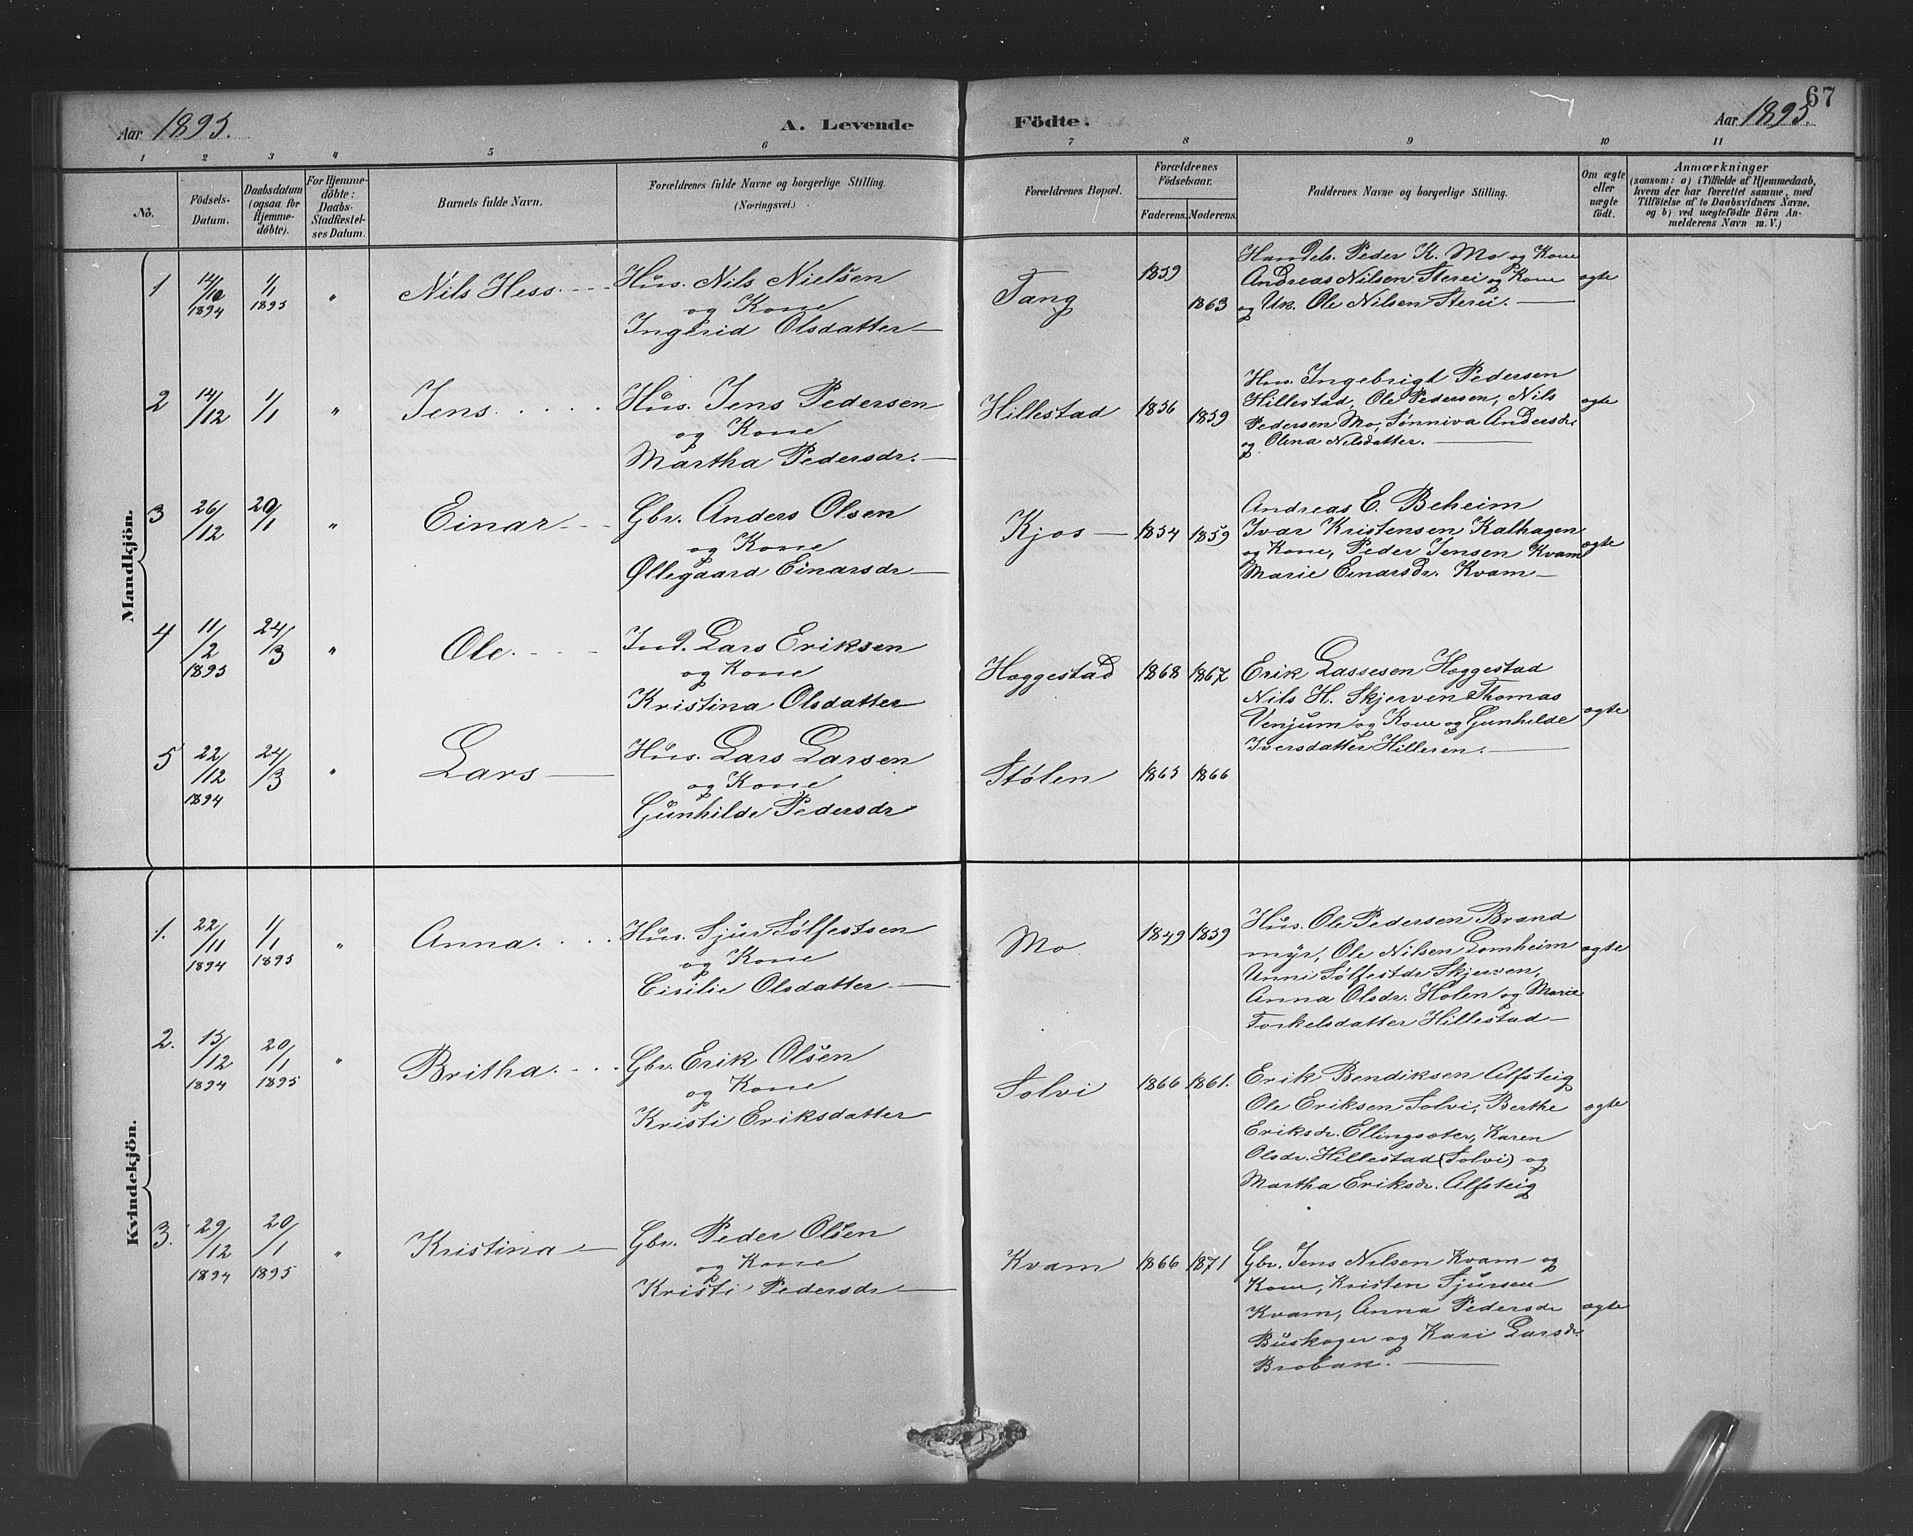 67
Aar 1895.
A. Levende Födte.
Aar 1895.
1 2 3 4 5 6 7 8 9 10 11
No.
Födsels-
Datum.
Daabsdatum
(ogsaa for
Hjemme-
döbte).
For Hjemme-
döbte:
Daabs-
Stadfæstel-
ses Datum.
Barnets fulde Navn.
Forældrenes fulde Navne og borgerlige Stilling.
(Næringsvei.)
Forældrenes Bopæl.
Forældrenes
Födselsaar.
Faderens. Moderens.
Faddernes Navne og borgerlige Stilling.
Om ægte
eller
uægte
födt.
Anmærkninger
(saasom: a) i Tilfælde af Hjemmedaab,
hvem der har forrettet samme, med
Tilföielse af to Daabsvidners Navne,
og b) ved uægtefödte Börn An-
melderens Navn m. V.)
Mandkjön.
1 14/10 1894 1/1 1895 " Nils Hess
Hus. Nils Nielsen
og Kone
Ingerid Olsdatter
Tang 1859 1863
Handels. Peder K. Mo og Kone
Andreas Nilsen Sterei og Kone
og Uk. Ole Nilsen Sterei.
ægte
2 14/12 1/1 " Jens
Hus. Jens Pedersen
og Kone
Martha Pedersdr.
Hillestad 1856 1859
Hus. Ingebrigt Pedersen
Hillestad, Ole Pedersen, Nils
Pedersen Mo, Sønniva Andersdr.
og Olina Nilsdatter.
ægte
3 26/12 20/1 " Einar
Gbr. Anders Olsen
og Kone
Øllegaard Einarsdr
Kjos 1854 1859
Andreas E. Beheim
Ivar Kristensen Kalhagen
og Kone, Peder Jensen Kvam
Marie Einarsdr. Kvam
ægte
4 11/2 1895 24/3 " Ole.
Ind. Lars Eriksen
og Kone
Kristina Olsdatter
Hæggestad 1868 1867
Erik Lassesen Hæggestad
Nils H. Skjerven Thomas
Venjum og Kone og Gunhilde
Iversdatter Hilleren.
ægte
5 22/12 1894 24/3 " Lars
Hus. Lars Larsen
og Kone
Gunhilde Pedersdr
Stølen 1865 1866
Kvindekjön.
1. 22/11 1894 1/1 1895 " Anna.
Hus. Sjur Sølfestsen
og Kone
Cisilie Olsdatter.
Mo 1849 1859
Hus. Ole Pedersen Brand
myr, Ole Nilsen Lomheim
Unni Sølfestdr Skjerven,
Anna Olsdr. Holen og Marie
Torkelsdatter Hillestad
ægte
2. 15/12 1894 20/1 1895 " Britha.
Gbr. Erik Olsen
og Kone
Kristi Eriksdatter
Solvi 1866 1861.
Erik Bendiksen Alfsteig
Ole Eriksen Solvi, Berthe
Eriksdr. Ellingsæter, Karen
Olsdr. Hillestad (Solvi) og
Martha Eriksdr. Alfsteig
ægte
3. 29/12 1894 20/1 1895 " Kristina
Gbr. Peder Olsen
og Kone
Kristi Pedersdr
Kvam 1866 1871
Gbr. Jens Nilsen Kvam og
Kone, Kristen Sjursen
Kvam, Anna Pedersdr
Buskager og Kari Larsdr
Brobak.
ægte